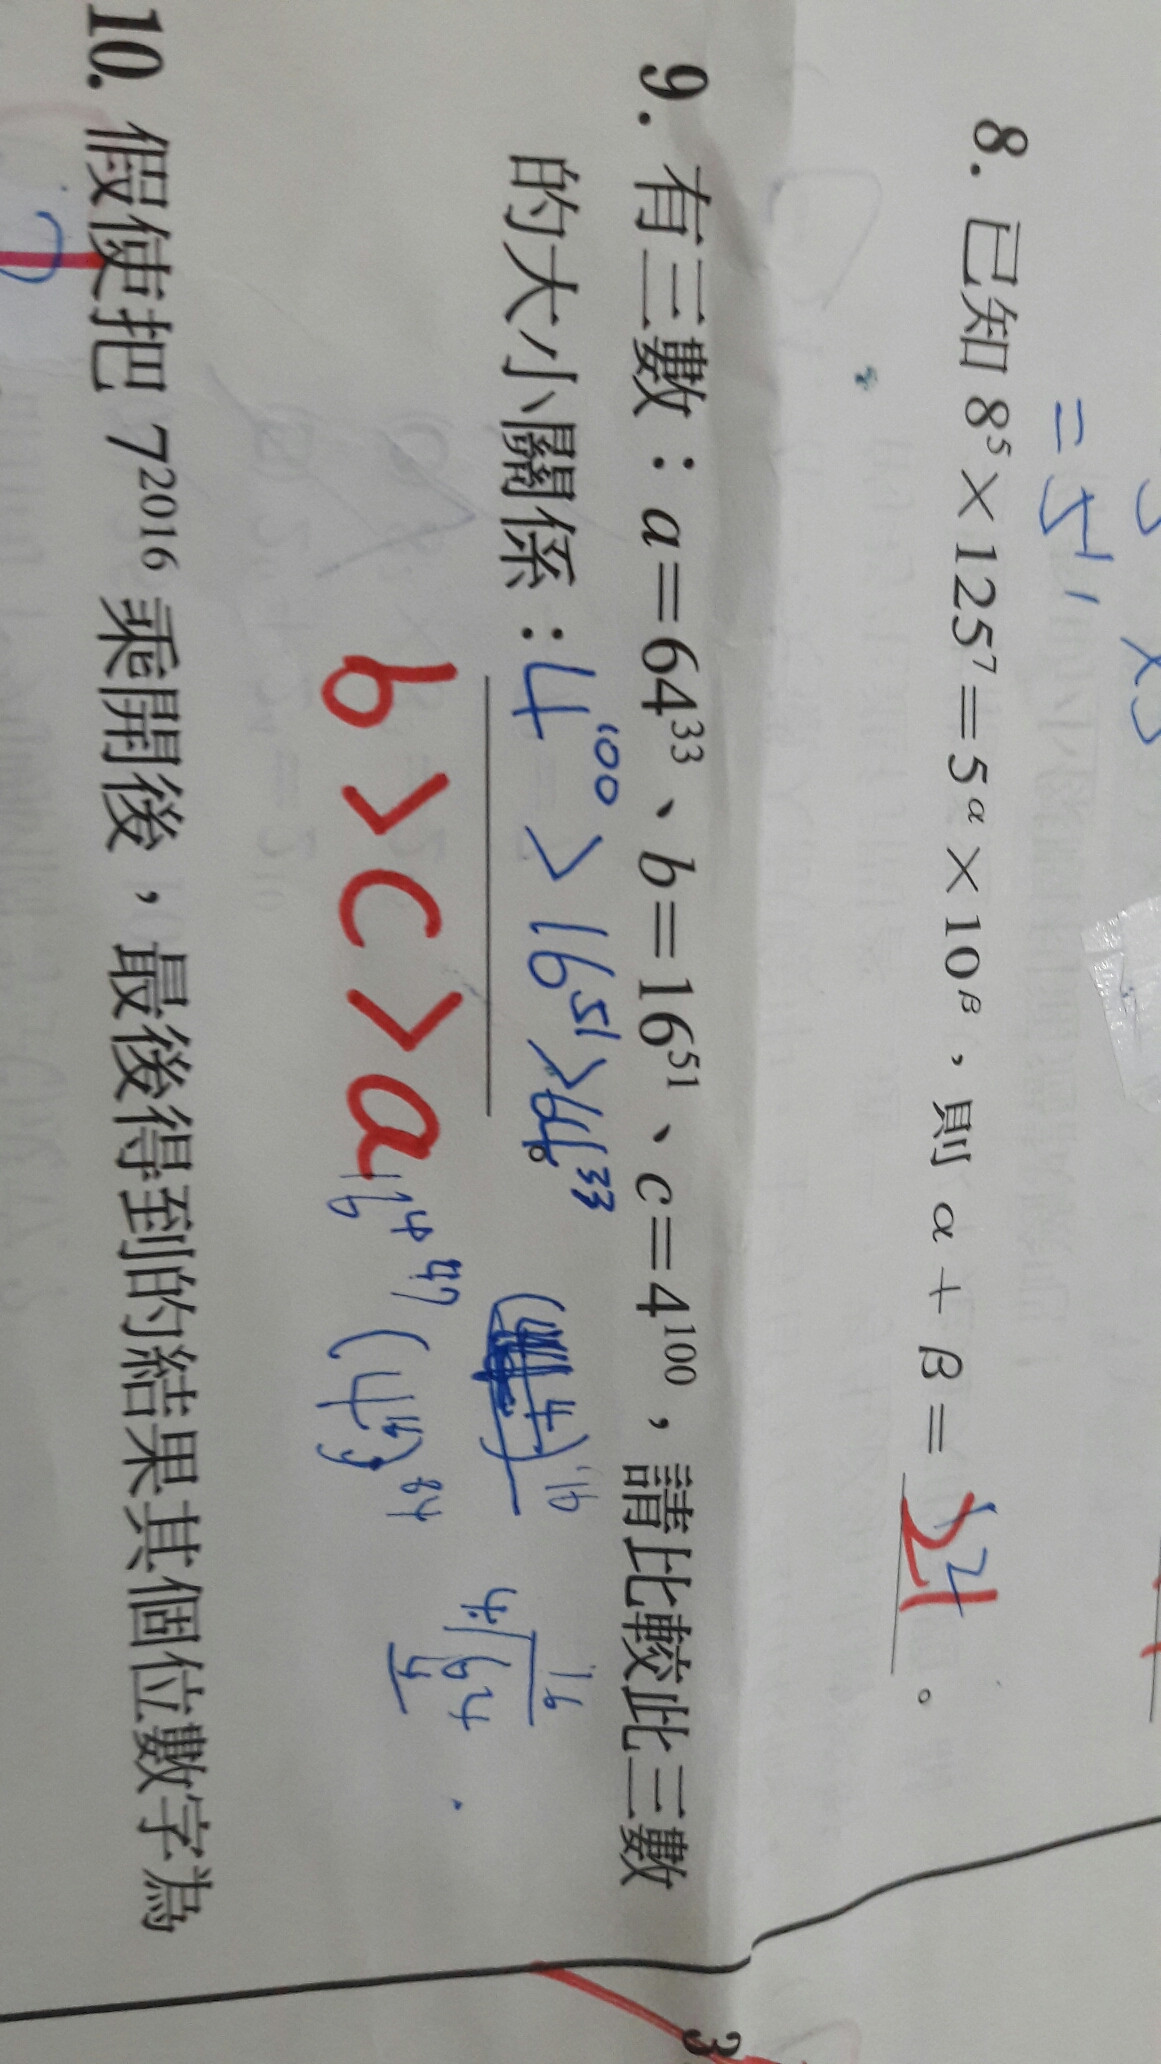 = 5
8. 已知 8⁵×125⁷=5^α×10^β，則 α+β= 21。
9. 有三數：a=64³³、b=16⁵¹、c=4¹⁰⁰，請比較此三數
的大小關係：4¹⁰⁰ > 16⁵¹ > 64³³。
b > c > a
10. 假使把 7²⁰¹⁶ 乘開後，最後得到的結果其個位數字為
3